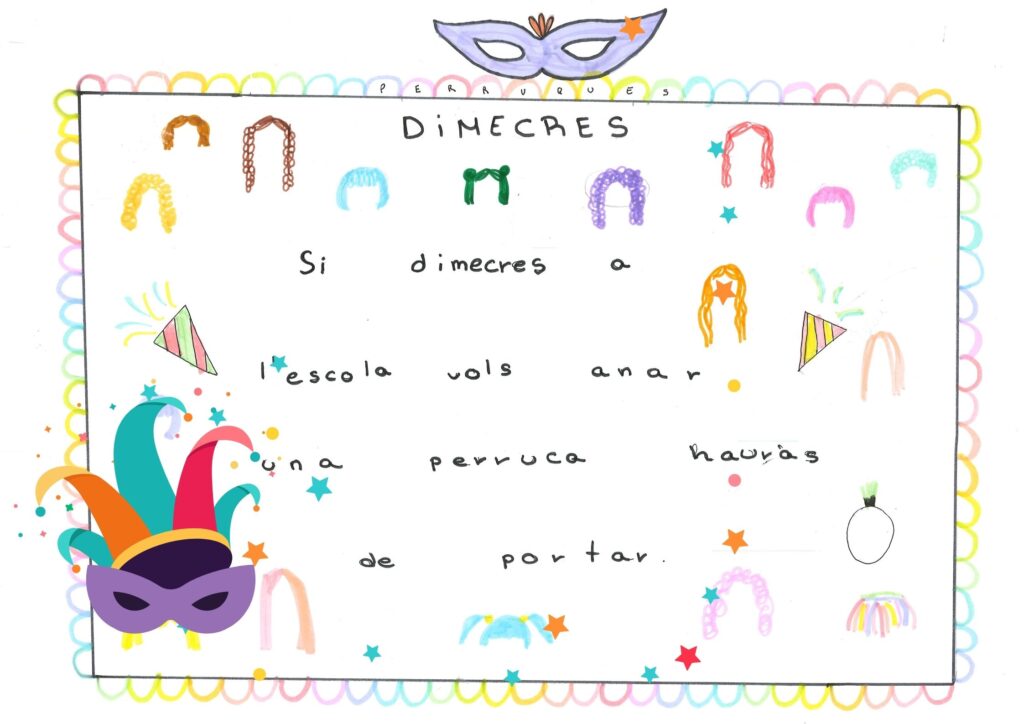 PERRUQUES
DiMECRES
Si dimecres a
l'escola vols anar
una perruca hauràs
de portar.